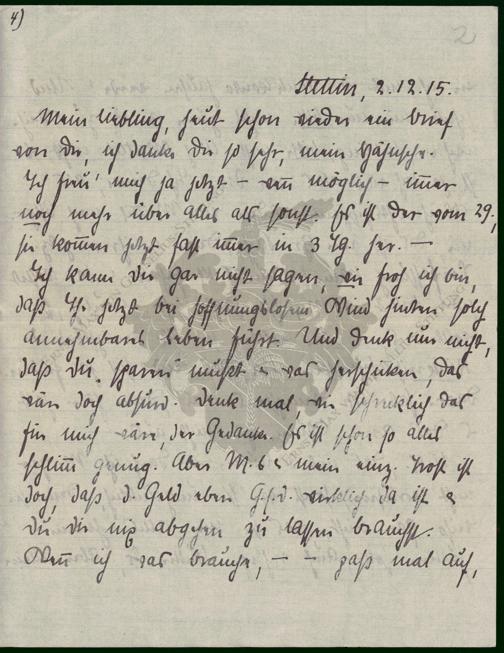 4)
2
Stettin, 2.12.15.
Mein Liebling, heut schon wieder ein Brief
von Dir, ich danke Dir so sehr, mein
Ich freu' mich ja jetzt – wenn möglich – immer
noch mehr über alles als sonst. Es ist der vom 29,
sie kommen jetzt fast immer in 3 Tg. her. –
Ich kann Dir gar nicht sagen, wie froh ich bin,
daß Ihr jetzt bei hoffnungslosem Wind hinten solch
annehmbares Leben führt. Und denk nur nicht,
daß Du „sparen“ mußt & was herschicken, das
wär doch absurd. Denk mal, wie schrecklich das
für mich wäre, der Gedanke. Es ist schon so alles
schlimm genug. Aber M. & mein einz. Trost ist
doch, daß d. Geld eben G.s.d. wirklich da ist &
Du Dir nix abgehen zu lassen brauchst.
Wenn ich was brauche, – – paß mal auf,